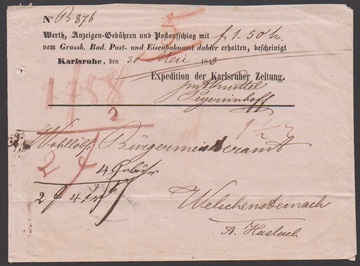 No B 876
Werth, Anzeigen-Gebühren und Postaufschlag mit f. 1. 50 kr.
vom Grossh. Bad. Post- und Eisenbahnamt dahier erhalten, bescheinigt
Karlsruhe, den 30 Mai 18
Expedition der Karlsruher Zeitung.
5
1158
2
Wohllöbl. Bürgermeisteramt
2 4
4 Gebühr
2 4
Welschensteinach
A. Haslach